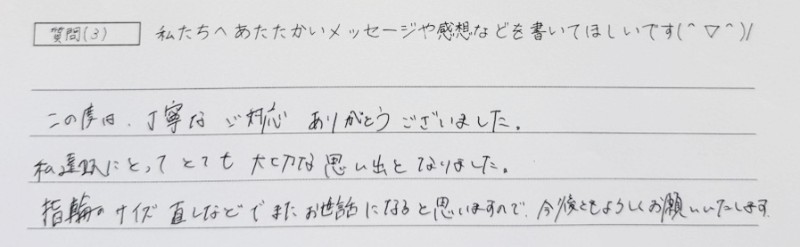 質問(3) 私たちへあたたかいメッセージや感想などを書いてほしいです(^▽^)/
この度は、丁寧なご対応ありがとうございました。
私達にとってとても大切な思い出となりました。
指輪のサイズ直しなどでまたお世話になると思いますので、今後ともよろしくお願いいたします。